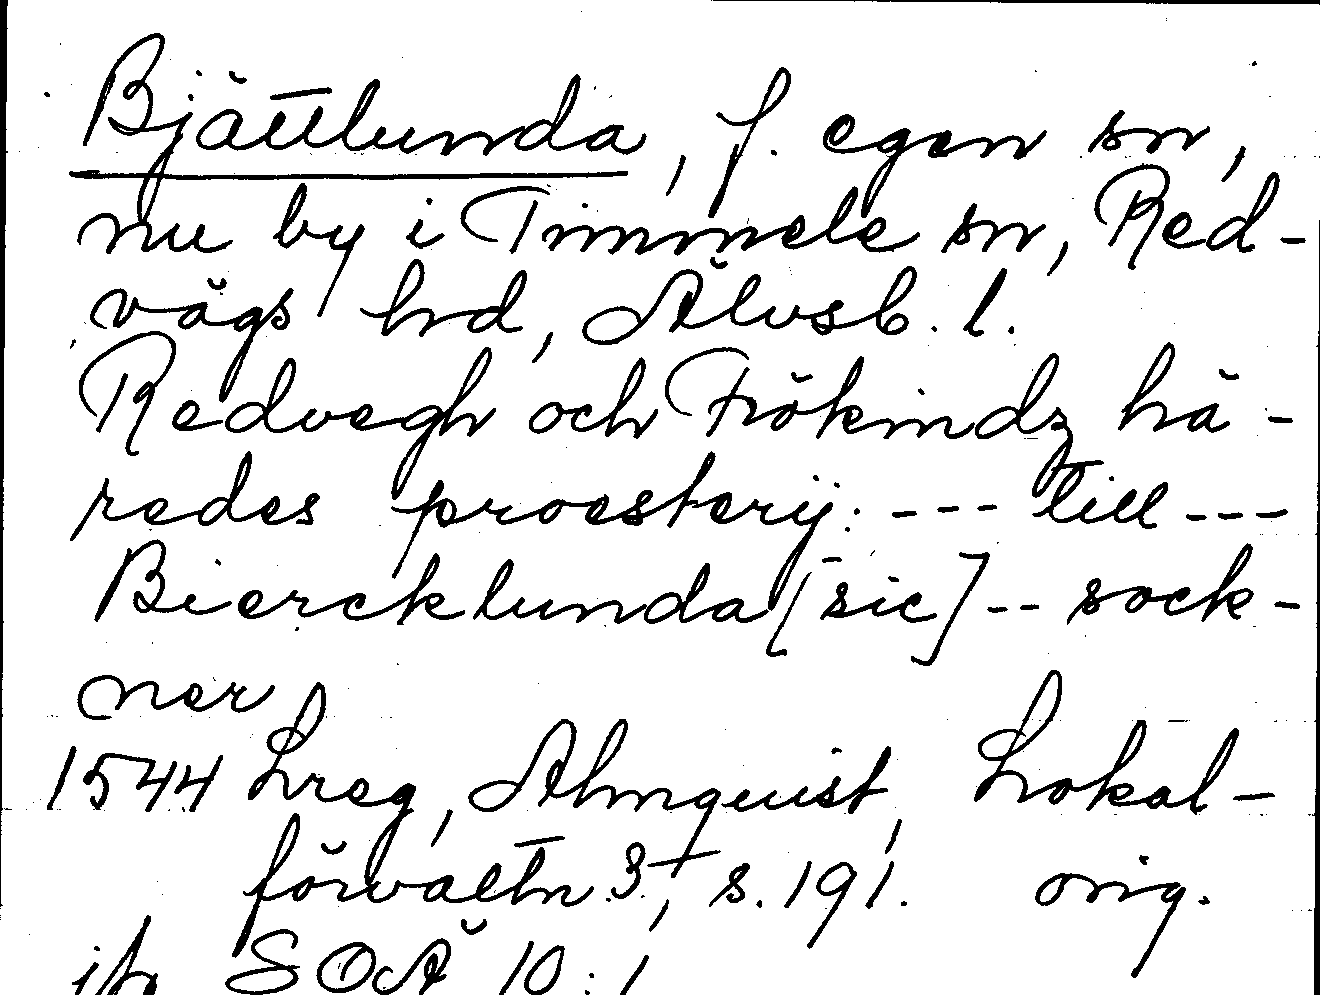 Bjättlunda, f. egen sn,
nu by i Timmele sn, Red-
vägs hrd, Älvsb. l.
Redvegh och Frökindz hä-
redes proesterij: --- till ---
Biercklunda [sic] -- sock-
ner
1544 Lreg, Almquist, Lokal-
förvaltn 3, s. 191. orig.
jfr SOÄ 10:1